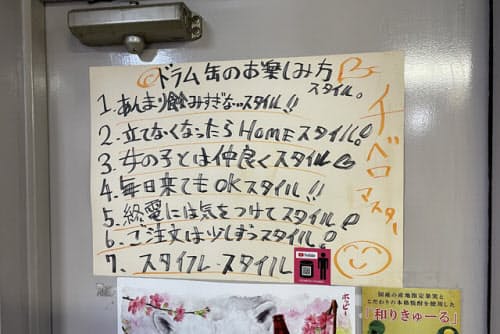 ドラム缶のお楽しみ方
スタイル。
1. あんまり飲みすぎないスタイル!!
2. 立てなくなったらHomeスタイル!
3. 女の子とは仲良くスタイル
4. 毎日来てもOKスタイル!!
5. 終電には気をつけてスタイル!
6. ご注文は少しずつスタイル!
7. スタイフレ・スタイル
チベロマスター
YouTube
ホッピー
国産の産地限定果実と
こだわりの本格焼酎を使用した
「和りきゅーる」